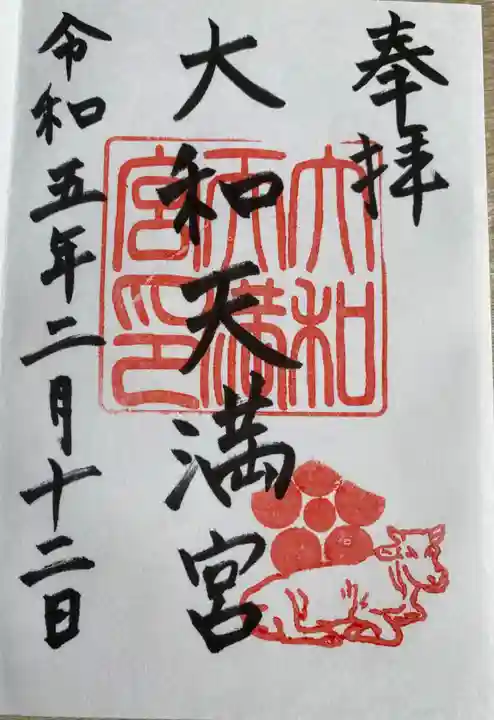 奉拝
大和天満宮
大和
天満
宮印
令和五年二月十二日